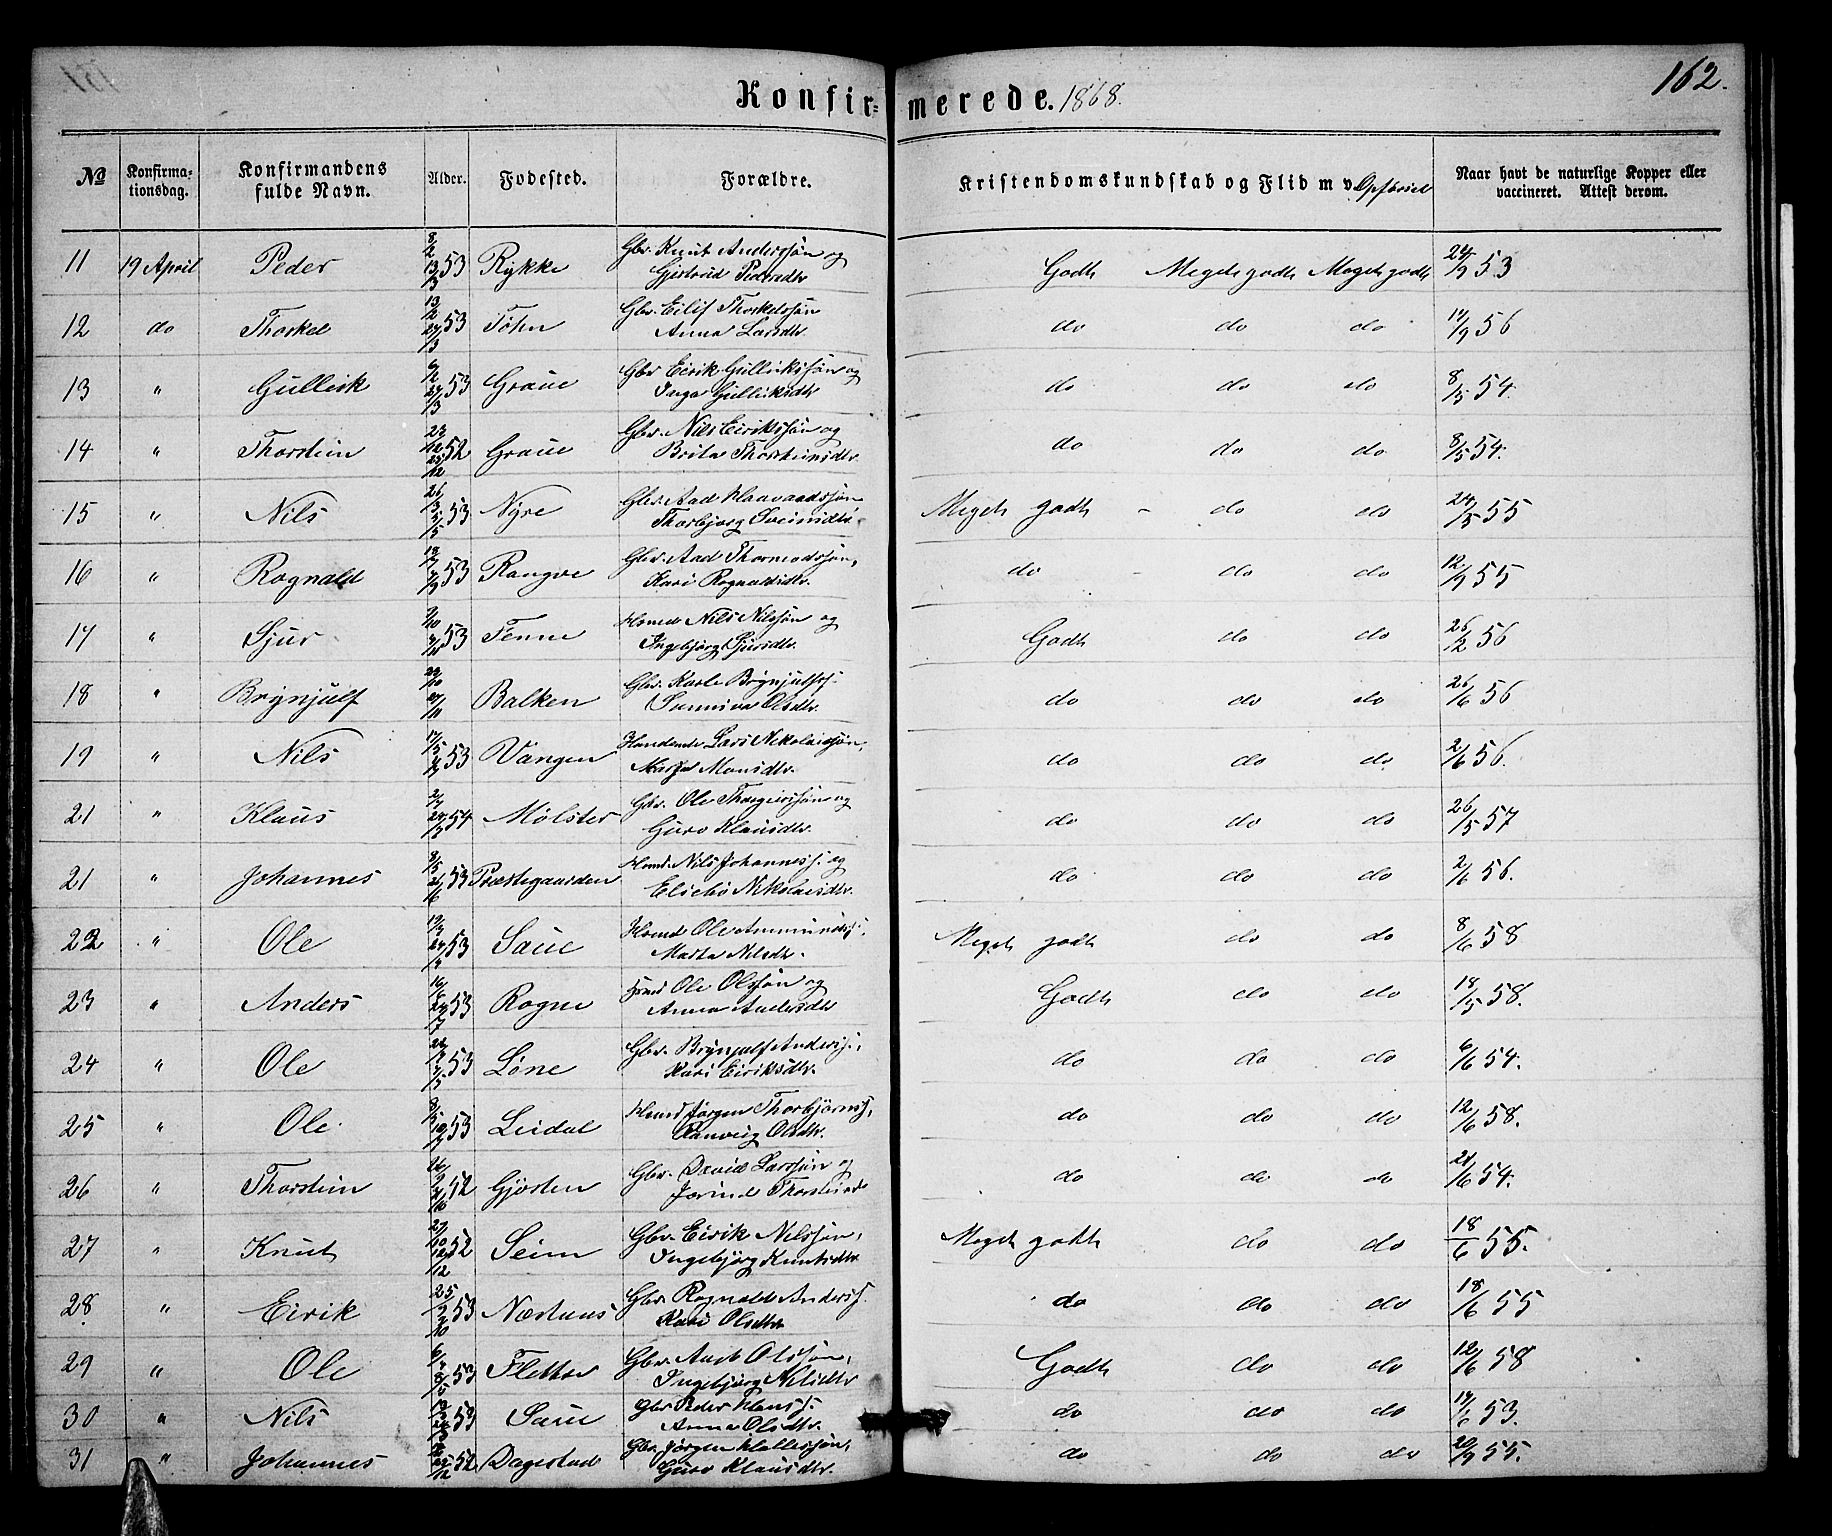 162.
Konfir= merede. 1868.
No Konfirma-tionsdag. Konfirmandens fulde Navn. Alder. Fødested. Forældre. Kristendomskundskab og Flid m v Opførsel Naar havt de naturlige Kopper eller vaccineret. Attest derom.
11 19 April Peder 8/2 13/3 53 Rykke Gbr. Knut Anderssøn og
Gjertrud Pedersdtr Godt Meget godt Meget godt 24/9 53
12 do Thorkel 13/2 27/3 53 Føhn Gbr. Eilif Thorkelssøn
Anna Larsdtr. do do do 17/9 56
13 " Gullerik 53 Graue Gbr Eirik Gulleriksøn og
Inga Gulleriksdtr do do do 8/5 54.
14 " Thorstein 52 Graue Gbr. Nils Eirikssøn og
Brita Thorsteinsdtr do do do 8/5 54.
15 " Nils 26/3 5/5 53 Nyre Gbr. Aad Klaavaadssøn
Thorbjorg Sveinsdtr. Meget godt - do do 24/5 55
16 " Rognald 53 Rongve Gbr. Aad Thormodssøn,
Kari Rognaldsdtr. do - do do 12/9 55
17 " Sjur 53 Tenne Hmd Nils Nilssøn og
Ingebjørg Sjursdtr. Godt do do 26/12 56
18 " Brynjulf Balken Gbr. Kaale Brynjulfss.
Sunniva Olsdtr. do do do 26/6 56
19 " Nils 53 Vangen Handemd Lars Nikolaissøn,
Marta Monsdtr. do do do 2/6 56.
21 " Klaus 54 Mølster Gbr. Ole Thorgeirssøn og
Guro Klausdtr. do do do 26/5 57
21 " Johannes 8/5 26/6 53 Præstegaarden Hmd. Nils Johanness. og
Elsebe Nikolaisdtr. do do do 2/6 56.
22 " Ole 53 Saue Hmd Ole Ammunds.
Marta Nilsdtr. Meget godt do do 8/6 58
23 " Anders 53 Rogne Hmd Ole Olssøn og
Anna Andersdtr Godt do do 18/5 58.
24 " Ole 53 Løne Gbr. Brynjulf Anders.,
Kari Eiriksdtr. do do do 6/6 54.
25 " Ole 53 Leidal Hmd Jørgen Thorbjørns.,
Ranveig Olsdtr. do do do 12/6 58.
26 " Thorstein 52 Gjosten Gbr. David Larssøn og
Jorind Thorsteinsdr do do do 21/6 54.
27 " Knut 52 Seim Gbr. Eirik Nilssøn,
Ingebjørg Knutsdtr Meget godt do do 18/6 55.
28. " Eirik 53 Næstaas Gbr. Rognald Anderss.
Kari Olsdtr do do do 18/6 55
29 " Ole 53 Flettre Gbr. Aad Olssøn,
Ingebjørg Nilsdtr Godt do do 12/6 58
30 " Nils 53 Saue Gbr Peder Klauss.
Anna Olsdtr. do do do 17/6 53.
31 " Johannes 52 Dagestad Gbr. Jørgen Kollessøn,
Guro Klausdtr. do do do 20/9 55.